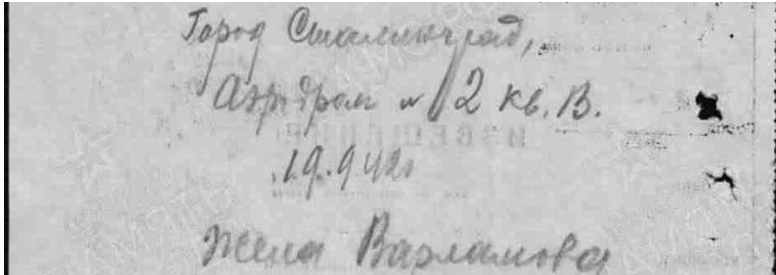 Город Сталинград,
Аэродром № 2 кв. В.
19.942г
жена Варламова